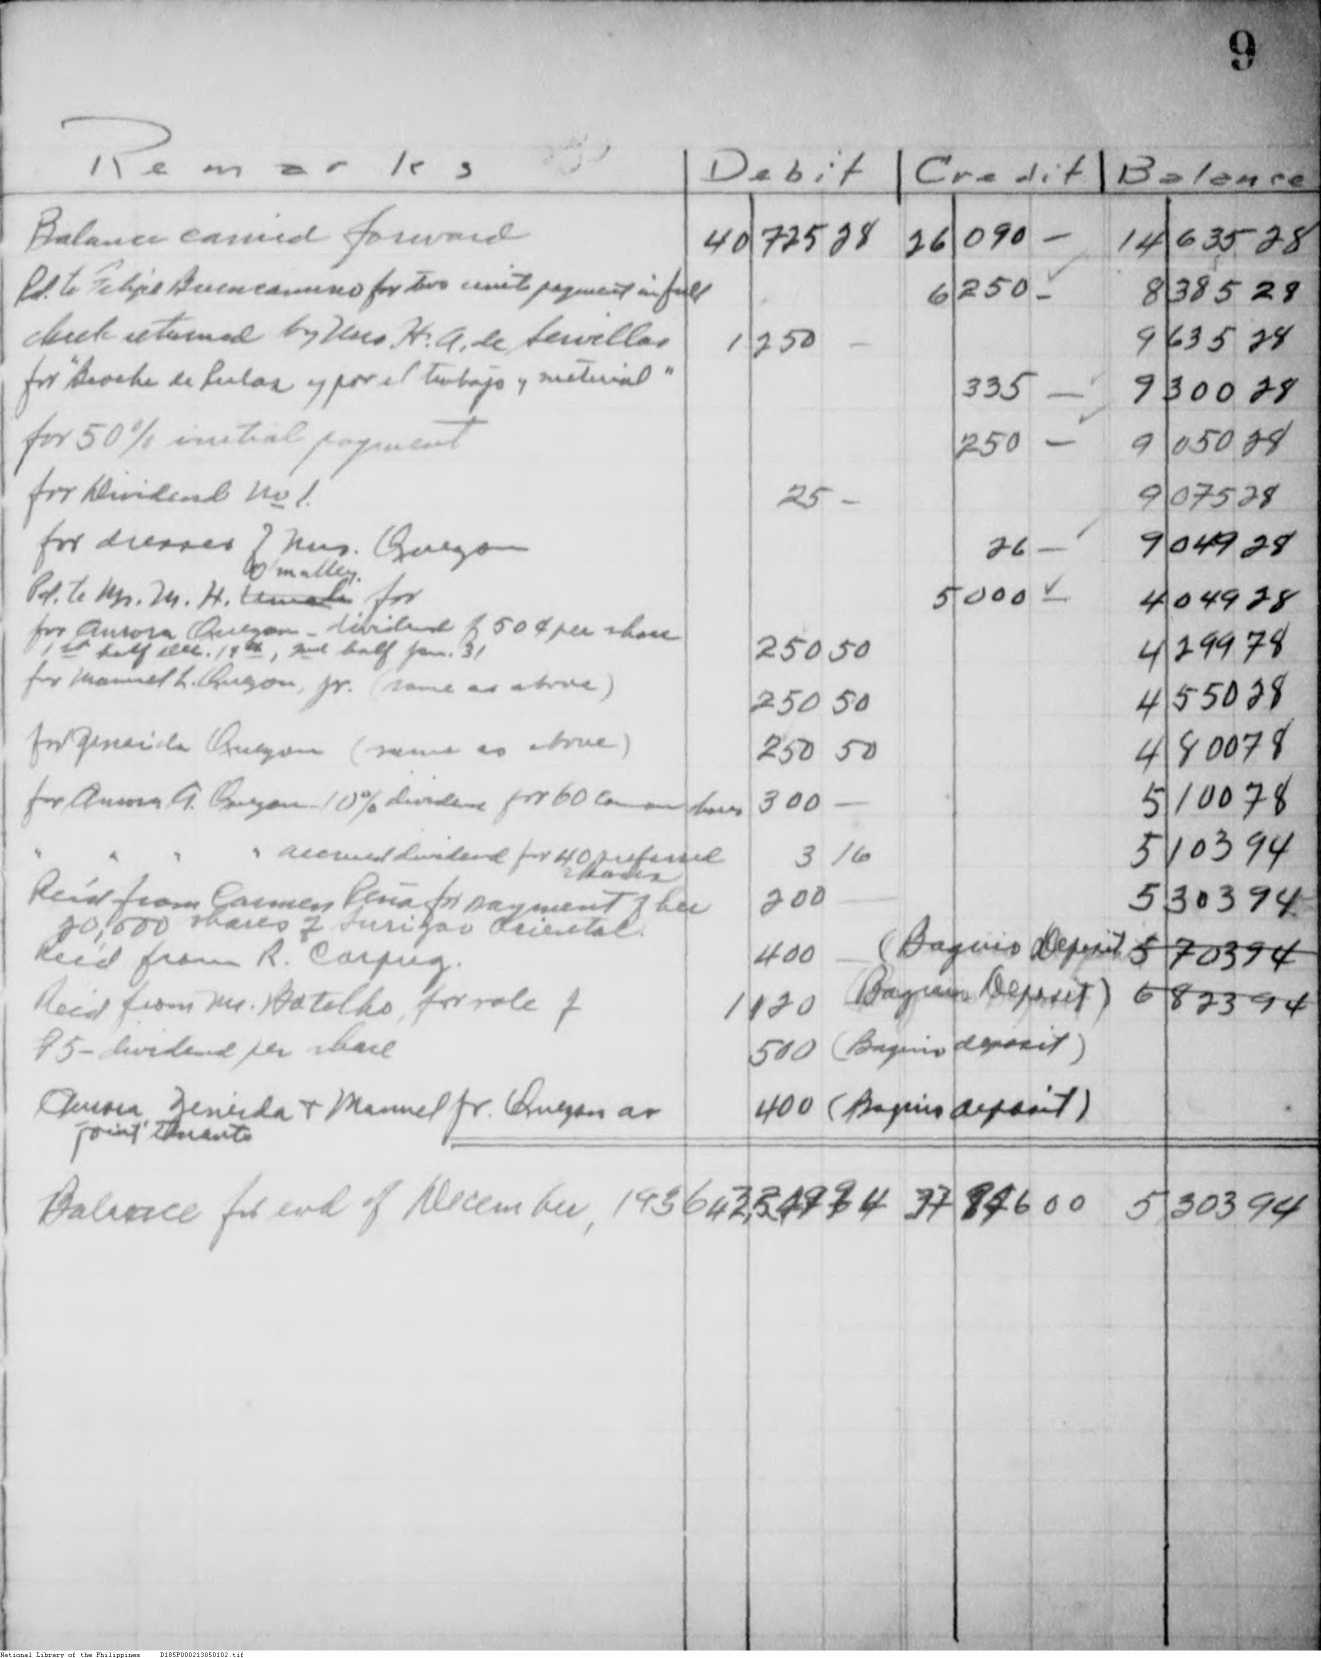 9
Remarks Debit Credit Balance
Balance carried forward 40 725 28 26 090 — 14 635 28
Pd. to Felipe Buencamino for two units payment in full 6 250 — 8 385 28
check returned by Mrs. H. A. de Sevillas 1 250 — 9 635 28
for "Broche de Perlas y por el trabajo y material" 335 — 9 300 28
for 50% initial payment 250 — 9 050 28
for Dividend No 1. 25 — 9 075 28
for dresses of Mrs. Quezon 26 — 9 049 28
O'malley.
Pd. to Mr. M. H. for 5 000 — 4 049 28
for Aurora Quezon - dividend of 50¢ per share
1st half Dec. 19th, 2nd half Jan. 31 250 50 4 299 78
for Manuel L. Quezon, Jr. (same as above) 250 50 4 550 28
for Zeneida Quezon (same as above) 250 50 4 800 78
for Aurora A. Quezon 10% dividend for 60 common shares 300 — 5 100 78
" " " " accrued dividend for 40 preferred 3 16 5 103 94
shares
Rec'd from Carmen Peña for payment of her 200 — 5 303 94
20,000 shares of Surigao Oriental.
Rec'd from R. Carpreg. 400 — (Baguio Deposit 5 703 94
Rec'd from Mr. Botelho, for sale of 1 120 (Baguio Deposit) 6 823 94
₱5 - dividend per share 500 (Baguio deposit)
Aurora, Zeneida + Manuel Jr. Quezon as 400 (Baguio deposit)
joint tenants
Balance for end of December, 1936 5 303 94
National Library of the Philippines D185P000213050102.tif